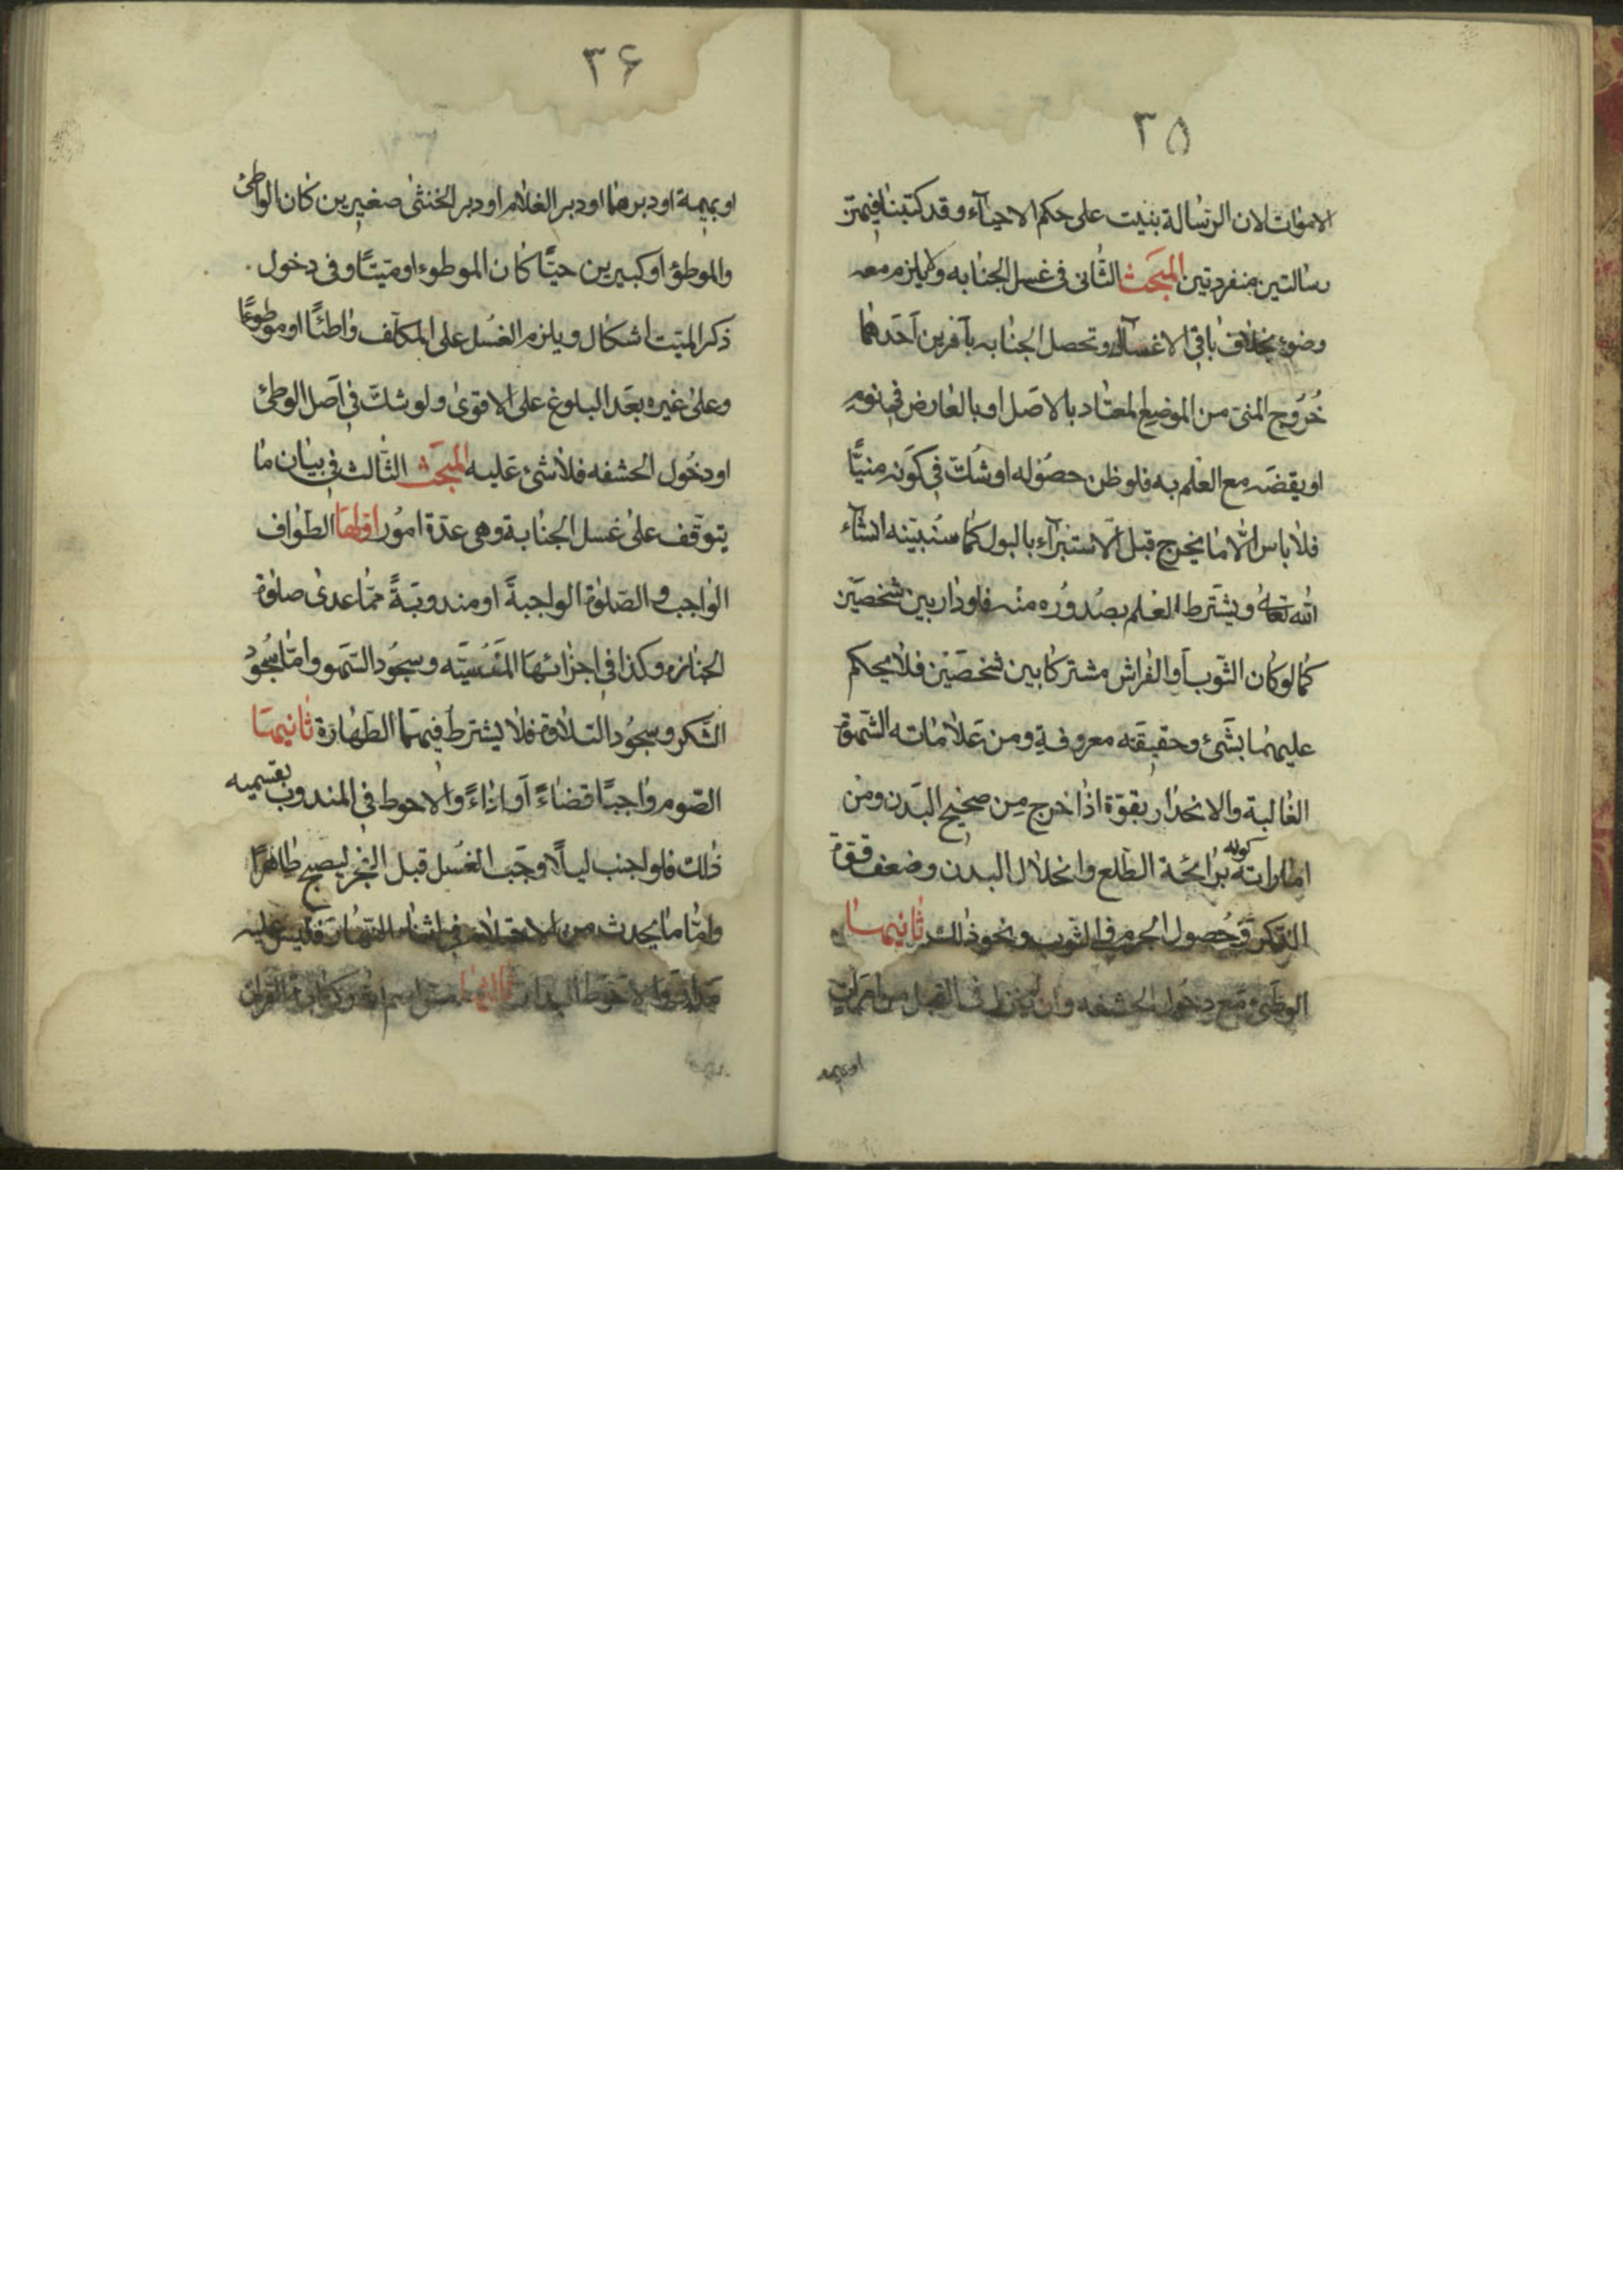 ٣٥
الاموات لان الرسالة بنيت على حكم الاحياء وقد كتبنا فيهم
رسالتين منفردتين المبحث الثانى فى غسل الجنابه ولا يلزم معه
وضوء بخلاف باقى الاغسال وتحصل الجنابه بامرين احدهما
خروج المنى من الموضع المعتاد بالاصل او بالعارض فى نوم
او يقضه مع العلم به فلو ظن حصوله او شك فى كونه منيًّا
فلا باس الا ما يخرج قبل الاستبرآء بالبول كما سنبيّنه انشآء
الله تعالى ويشترط العلم بصدوره منه فلو دار بين شخصين
كما لو كان الثوب او الفراش مشتركا بين شخصين فلا يحكم
عليهما بشئ وحقيقته معروفة ومن علاماته الشهوة
الغالبة والانحدار بقوة اذا خرج من صحيح البدن ومن
اماراته كونه برائحة الطلع وانحلال البدن وضعف قوة
الذكر وحصول الجرم فى الثوب ونحو ذلك ثانيهما
الوطئ مع دخول الحشفه وان لم ينزل فى القبل من امراة
او بهيمه
٣۶
او بهيمة او دبرهما او دبر الغلام او دبر الخنثى صغيرين كان الواطئ
والموطؤ او كبيرين حيًّا كان الموطوء او ميتًا وفى دخول
ذكر الميت اشكال ويلزم الغسل على المكلف واطئًا او موطوءًا
وعلى غيره بعد البلوغ على الاقوى ولو شك فى اصل الوطئ
او دخول الحشفه فلا شئ عليه المبحث الثالث فى بيان ما
يتوقف على غسل الجنابة وهى عدّة امور اولها الطواف
الواجب والصلوة الواجبةً او مندوبةً ممّا عدى صلوة
الجنازه وكذا فى اجزائها المنسيّه وسجود السهو وامّا سجود
الشكر وسجود التلاوة فلا يشترط فيهما الطهارة ثانيها
الصوم واجبًا قضاءً او اداءً والاحوط فى المندوب بقسميه
ذلك فلو اجنب ليلًا وجب الغسل قبل الفجر ليصبح طاهرًا
وامّا ما يحدث من الاحتلام فى اثناء النهار فليس عليه
والاحوط ثالثها القران